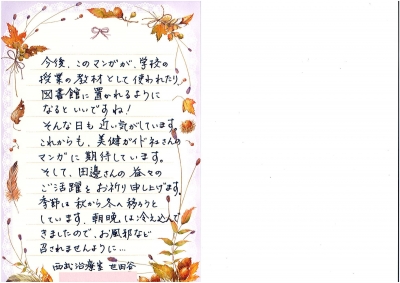 今後、このマンガが、学校の
授業の教材として使われたり、
図書館に置かれるように
なるといいですね!
そんな日も近い気がしています。
これからも、美健ガイド社さんの
マンガに期待しています。
そして、田邊さんの益々の
ご活躍をお祈り申し上げます。
季節は秋から冬へ移ろうと
しています。朝晩は冷え込んで
きましたので、お風邪など
召されませんように…
西武治療室 世田谷